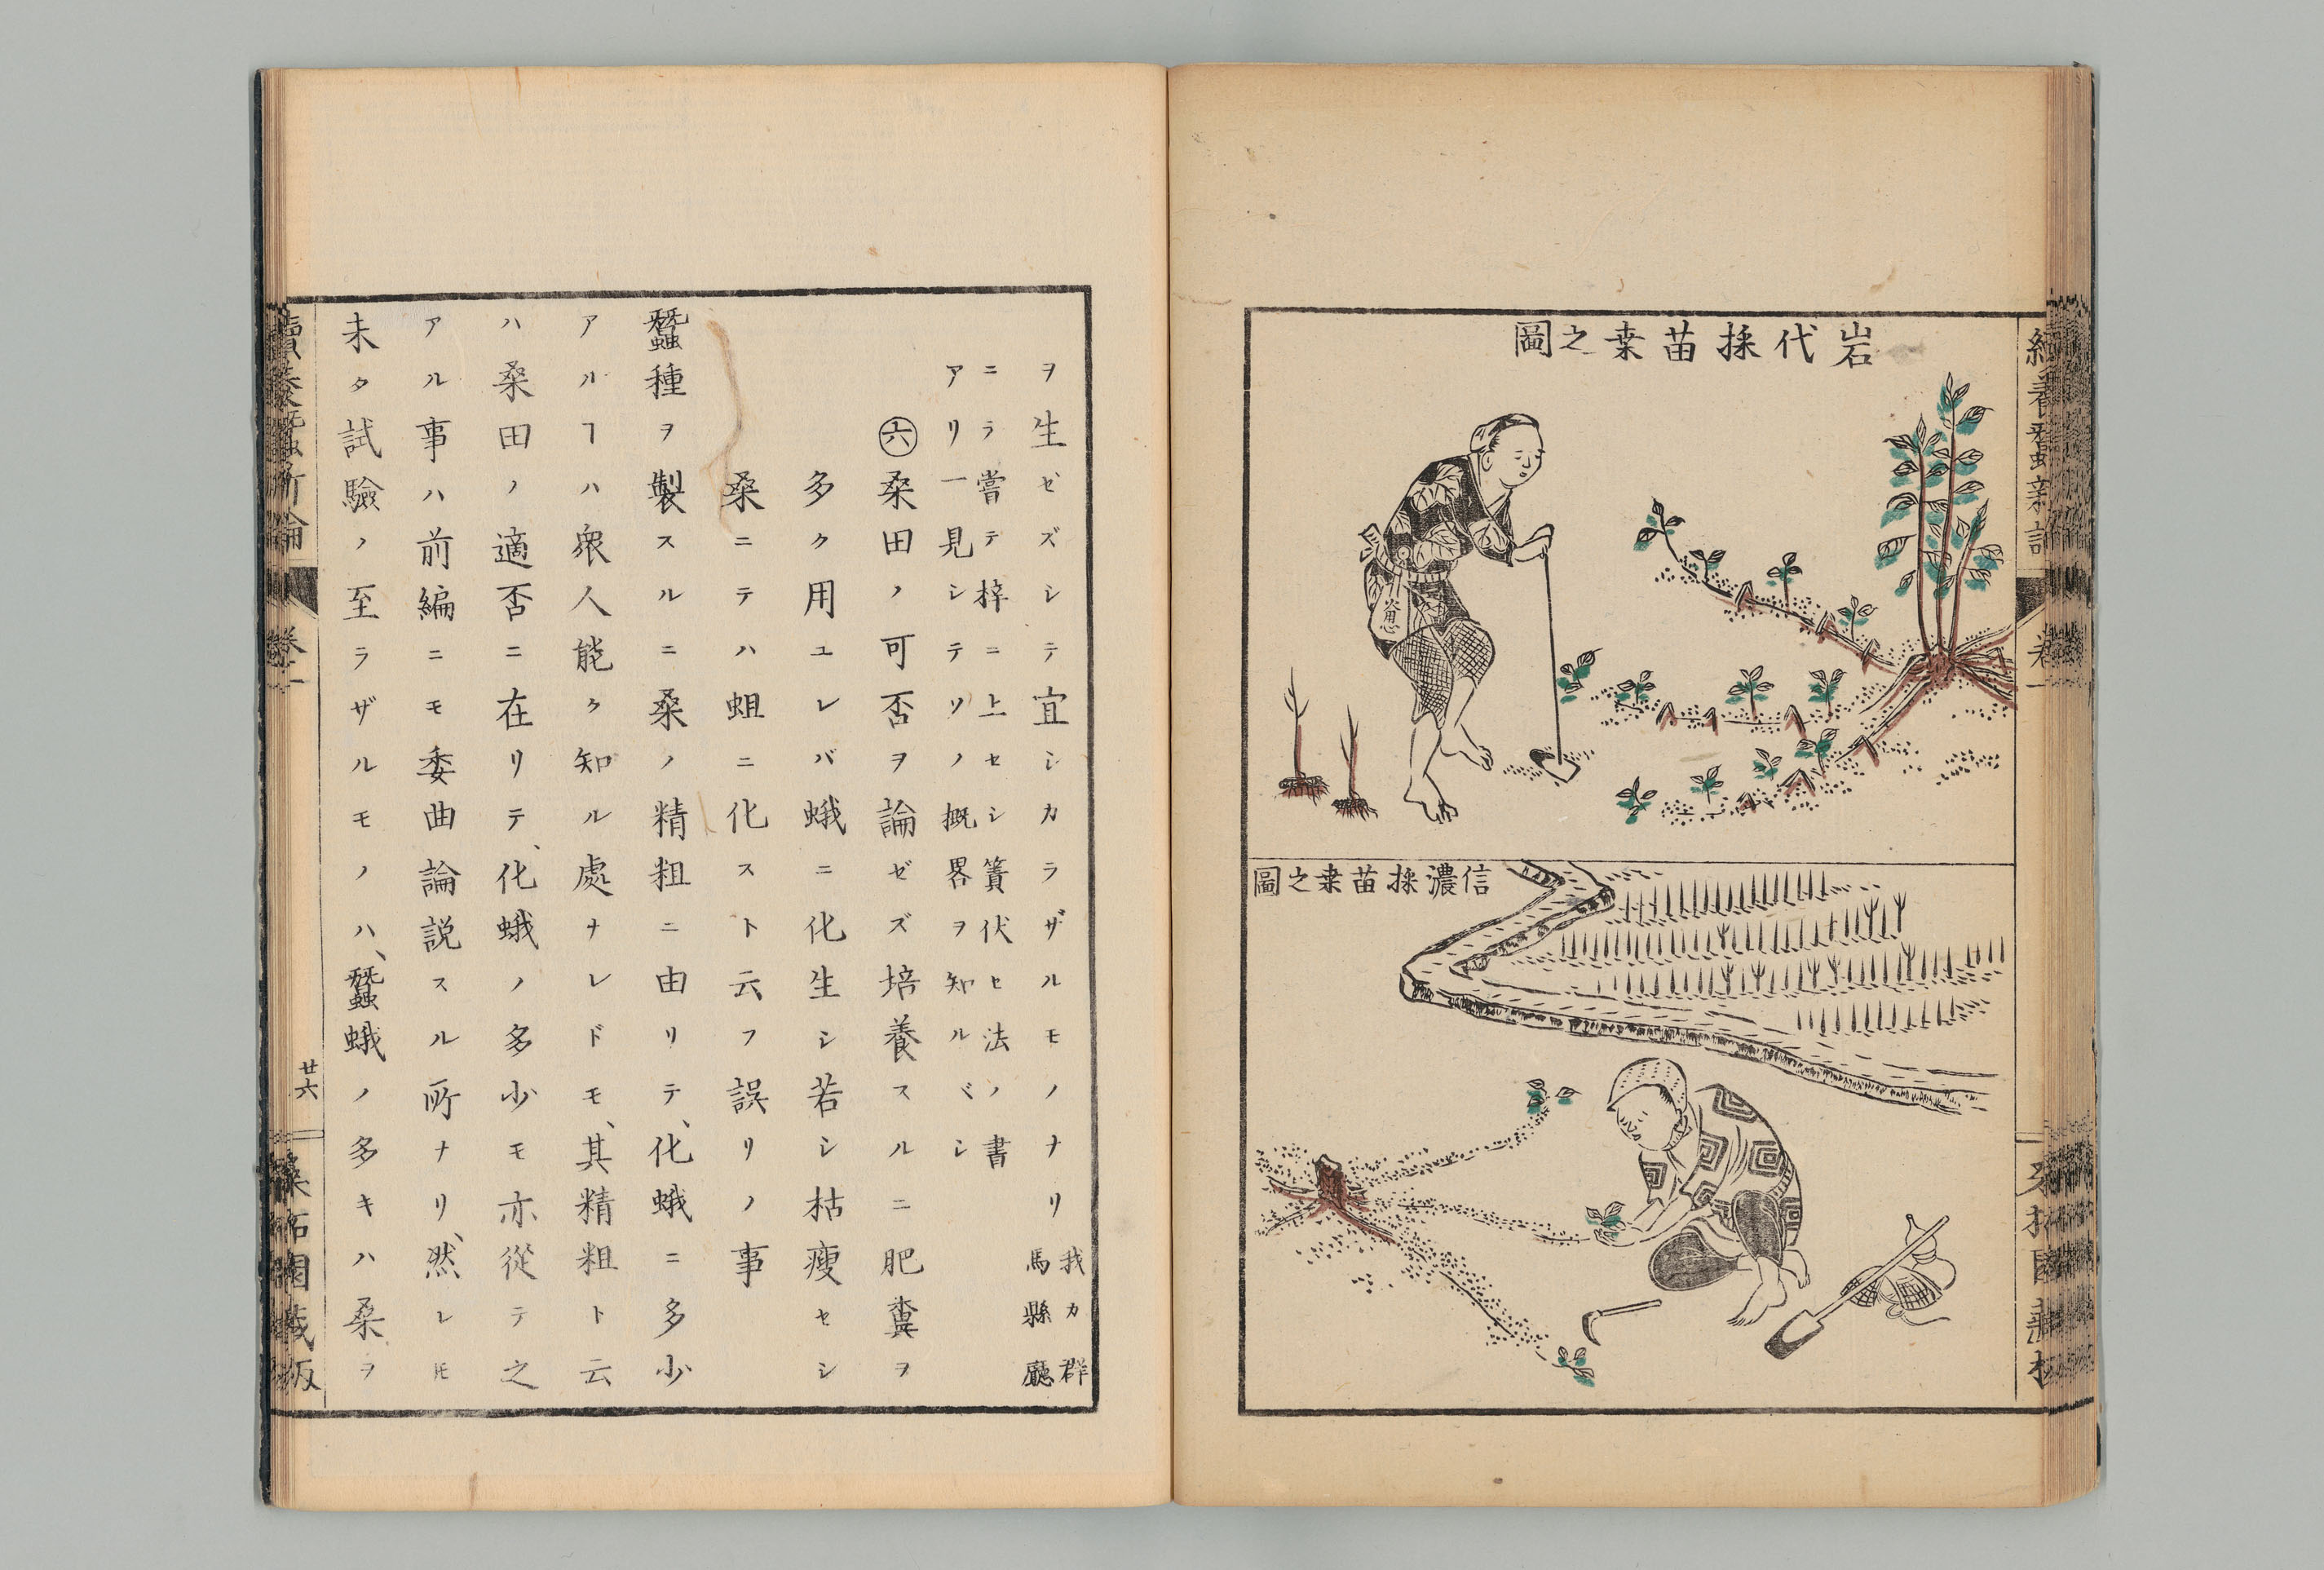 岩代採苗桒之圖
信濃採苗桒之圖
ヲ生ゼズシテ宜シカラザルモノナリ我カ群馬縣廳
ニラ嘗テ梓ニ上セシ簀伏セ法ノ書
アリ一見シテソノ概畧ヲ知ルベシ
㊅桑田ノ可否ヲ論ゼズ培養スルニ肥糞ヲ
多ク用ユレバ蛾ニ化生シ若シ枯瘦セシ
桑ニテハ蛆ニ化スト云フ誤リノ事
蠶種ヲ製スルニ桑ノ精粗ニ由リテ、化蛾ニ多少
アルヿハ衆人能ク知ル處ナレドモ、其精粗ト云
ハ桑田ノ適否ニ在リテ、化蛾ノ多少モ亦從テ之
アル事ハ前編ニモ委曲論説スル所ナリ、然レ𪜈
未タ試驗ノ至ラザルモノハ、蠶蛾ノ多キハ桑ヲ
續養蠶新論
卷一
廿六
桑柘園藏版